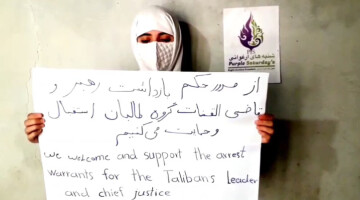 شنبه های ارغوانی
Purple Saturday's
از صدور حکم بازداشت رهبر و
قاضی القضات گروه طالبان استقبال
وحمایت می‌کنیم
we welcome and support the arrest
warrants for the Taliban's leader
and chief justice